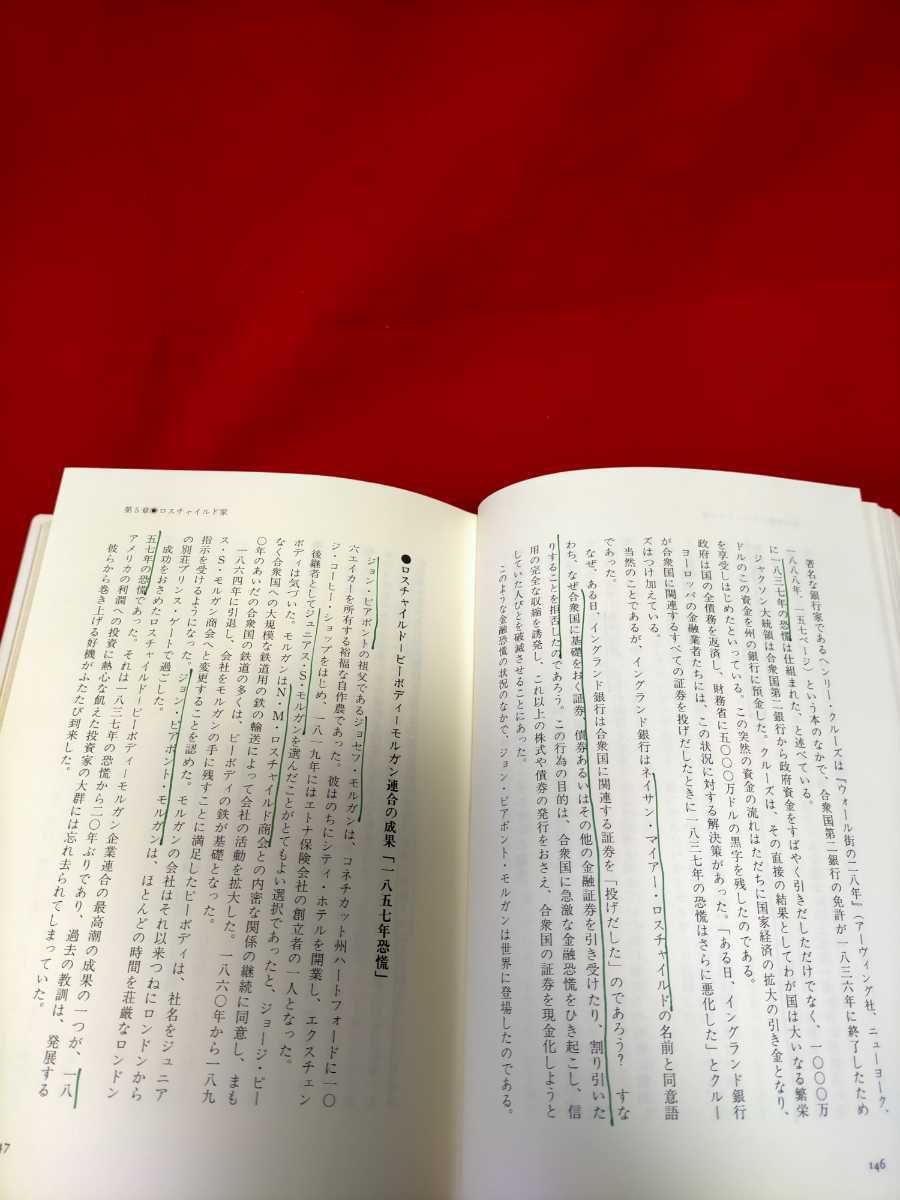 著名な銀行家であるヘンリー・クルーズは『ウォール街の二八年』（アーヴィング社、ニューヨーク、
一八八八年、一五七ページ）という本のなかで、合衆国第二銀行の免許が一八三六年に終了したため
に一八三七年の恐慌は仕組まれた、と述べている。
ジャクソン大統領は合衆国第二銀行から政府資金をすばやく引きだしただけでなく、一〇〇〇万
ドルのこの資金を州の銀行に預金した。クルーズは、その直接の結果としてわが国は大いなる繁栄
を享受しはじめたといっている。この突然の資金の流れはただちに国家経済の拡大の引き金となり、
政府は国の全債務を返済し、財務省に五〇〇〇万ドルの黒字を残したのである。
ヨーロッパの金融業者たちには、この状況に対する解決策があった。「ある日、イングランド銀行
が合衆国に関連するすべての証券を投げだしたときに一八三七年の恐慌はさらに悪化した」とクルー
ズはつけ加えている。
当然のことであるが、イングランド銀行はネイサン・マイアー・ロスチャイルドの名前と同意語
であった。
なぜ、ある日、イングランド銀行は合衆国に関連する証券を「投げだした」のであろう？　すな
わち、なぜ合衆国に基礎をおく証券、債券あるいはその他の金融証券を引き受けたり、割り引いた
りすることを拒否したのであろう。この行為の目的は、合衆国に急激な金融恐慌をひき起こし、信
用の完全な収縮を誘発し、これ以上の株式や債券の発行をおさえ、合衆国の証券を現金化しようと
していた人びとを破滅させることにあった。
このような金融恐慌の状況のなかで、ジョン・ピアポント・モルガンは世界に登場したのである。
146
第5章◉ロスチャイルド家
●ロスチャイルド―ピーボディ―モルガン連合の成果「一八五七年恐慌」
ジョン・ピアポントの祖父であるジョセフ・モルガンは、コネチカット州ハートフォードに一〇
六エイカーを所有する裕福な自作農であった。彼はのちにシティ・ホテルを開業し、エクスチェン
ジ・コーヒー・ショップをはじめ、一八一九年にはエトナ保険会社の創立者の一人となった。
後継者としてジュニアス・S・モルガンを選んだことがとてもよい選択であったと、ジョージ・ピー
ボディは気づいた。モルガンはN・M・ロスチャイルド商会との内密な関係の継続に同意し、まも
なく合衆国への大規模な鉄道用の鉄の輸送によって会社の活動を拡大した。一八六〇年から一八九
〇年のあいだの合衆国の鉄道の多くは、ピーボディの鉄が基礎となった。
一八六四年に引退し、会社をモルガンの手に残すことに満足したピーボディは、社名をジュニア
ス・S・モルガン商会へと変更することを認めた。モルガンの会社はそれ以来つねにロンドンから
指示を受けるようになった。ジョン・ピアポント・モルガンは、ほとんどの時間を荘厳なロンドン
の別荘プリンス・ゲートで過ごした。
成功をおさめたロスチャイルド―ピーボディ―モルガン企業連合の最高潮の成果の一つが、一八
五七年の恐慌であった。それは一八三七年の恐慌から二〇年ぶりであり、過去の教訓は、発展する
アメリカの利潤への投資に熱心な飢えた投資家の大群には忘れ去られてしまっていた。
彼らから巻き上げる好機がふたたび到来した。
47